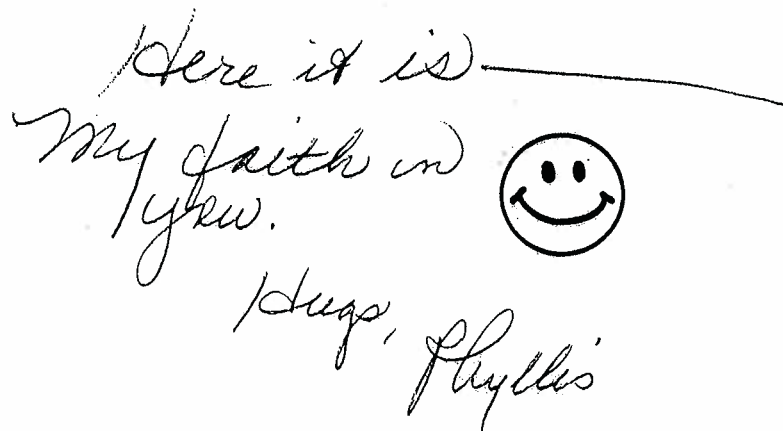 Here it is —
My faith in
you.
Hugs,
Phyllis